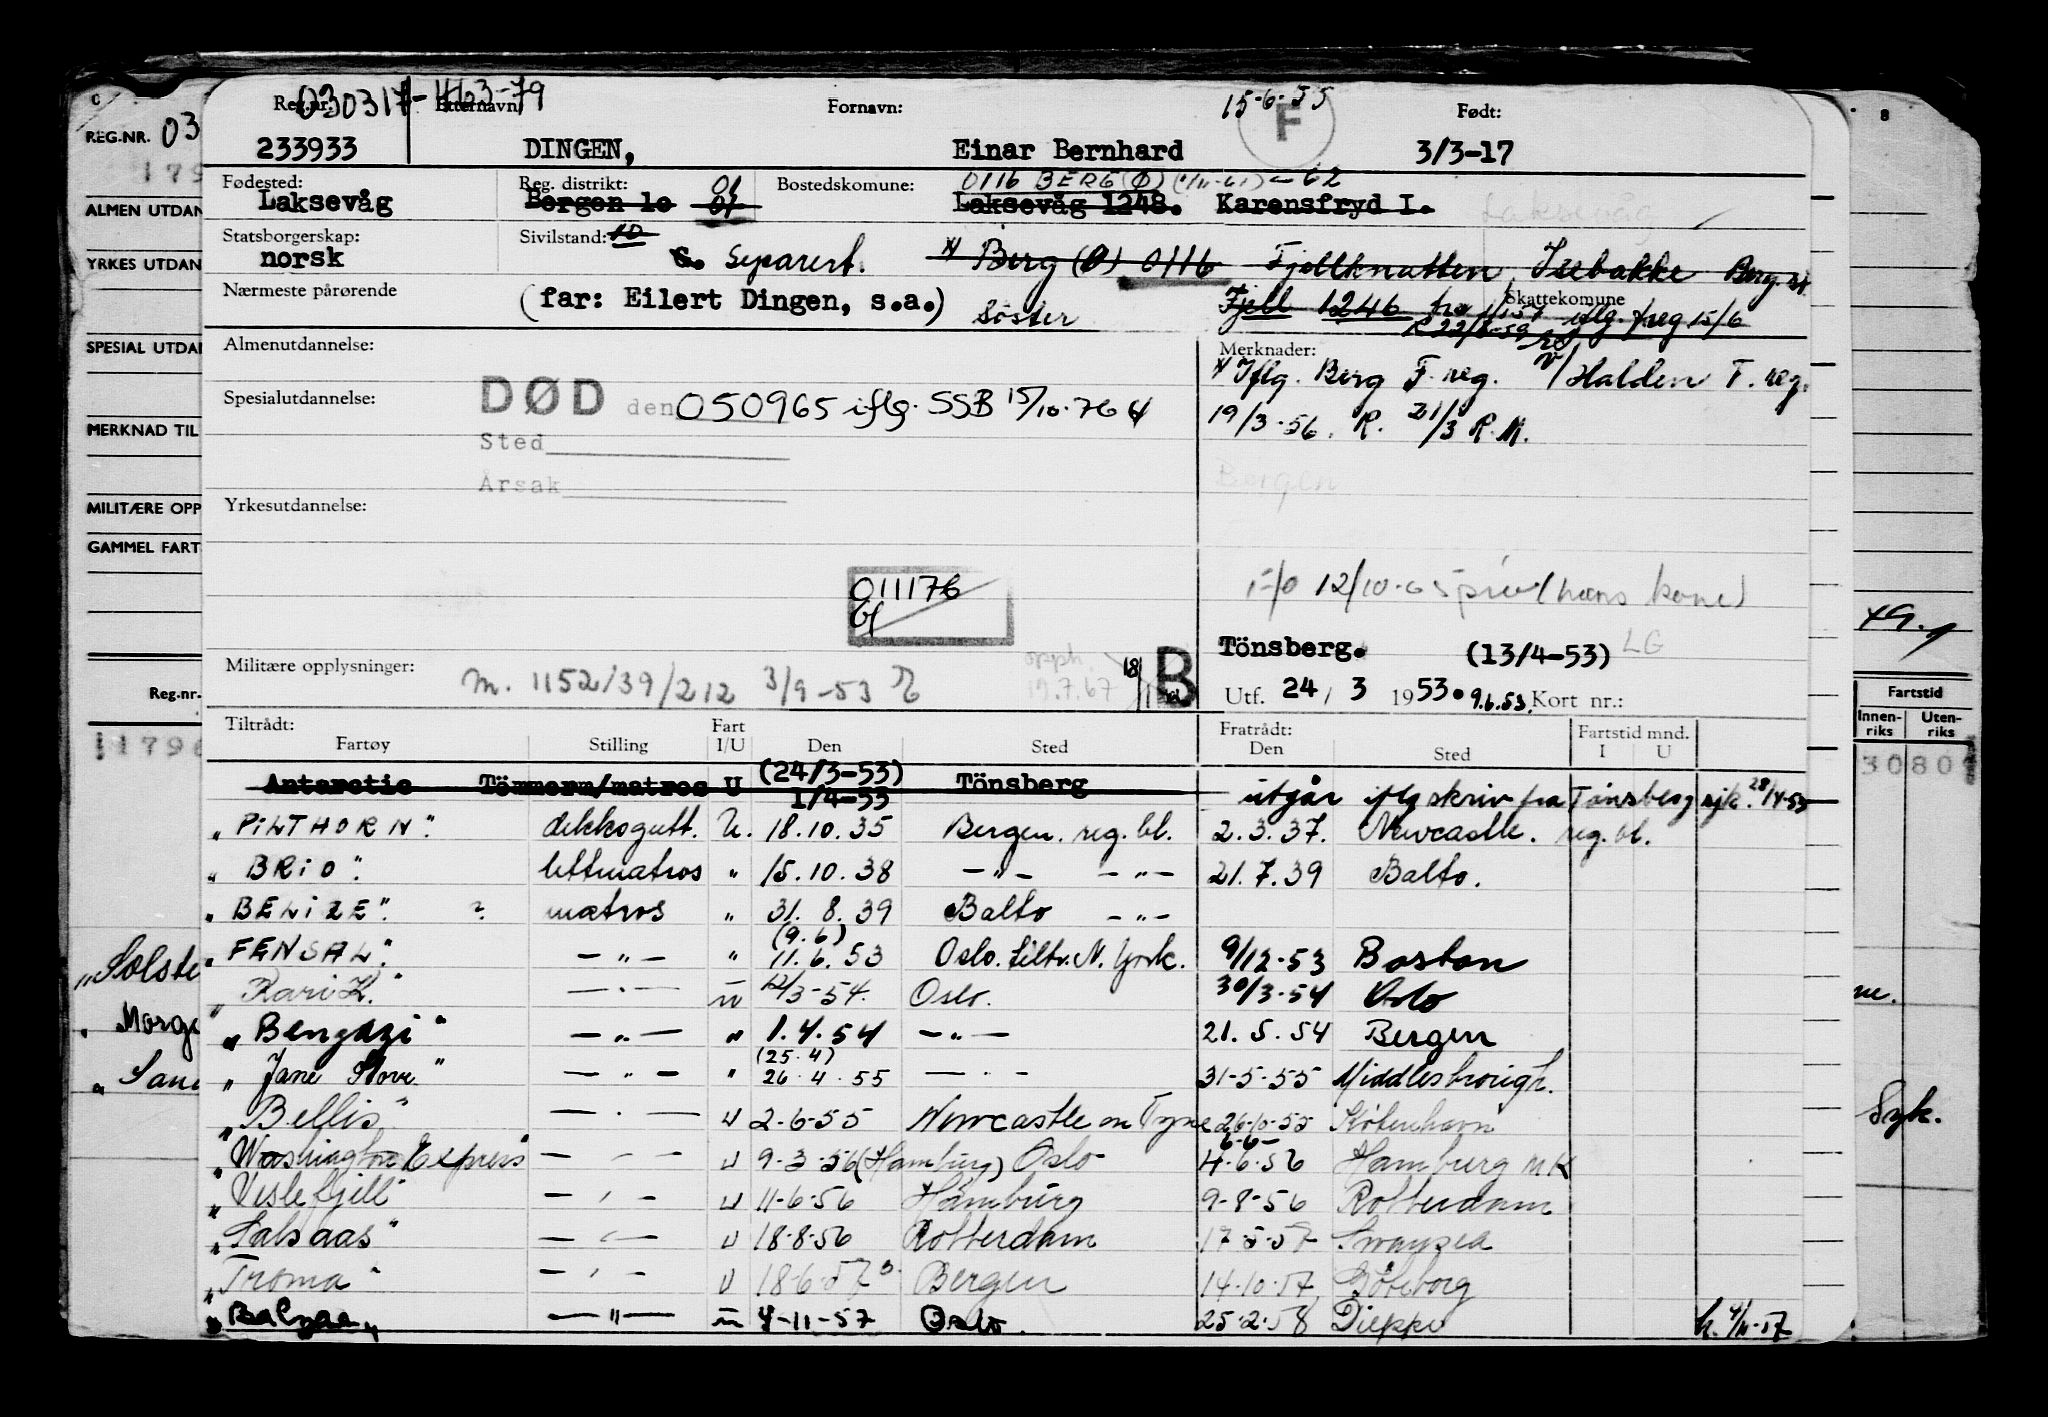 030317-46379 15-6-55
Reg.nr. Etternavn: Fornavn: F Født:
233933 DINGEN, Einar Bernhard 3/3-17
Fødested: Reg. distrikt: 01 Bostedskomune: 0116 BERG (Ø) (1/11-61) - 62
Laksevåg Bergen 1o 01 Laksevåg 1248. Karensfryd I. Laksevåg
Statsborgerskap: Sivilstand: 10
norsk S. Separert. x/ Berg (Ø) 0116 Fjellknatten, Isebakke Berg. st.
Nærmeste pårørende (far: Eilert Dingen, s.a.) Söster Fjell 1246 fra Skattekomune
iflg. freg 15/6
Almenutdannelse: Merknader:
x/ Iflg. Berg F. reg. v/Halden T. reg.
Spesialutdannelse: DØD den 050965 iflg. SSB 15/10-76
19/3-56. R. 21/3 R.M.
Sted
Årsak
Bergen
Yrkesutdannelse:
011176
12/10-65 priv (hans kone)
Tönsberg. (13/4-53) LG
Militære opplysninger: m. 1152/39/212 3/9-53 opph. 19.7.67 18/11 B Utf. 24/ 3 1953. 9.6.53. Kort nr.:
Tiltrådt: Fart Fratrådt: Fartstid mnd.
Fartøy Stilling I/U Den Sted Den Sted I U
Antarctic Tömmerm/matros U (24/3-53) 1/4-53 Tönsberg utgår iflg skriv fra Tönsberg sjk. 28/4-53
"PILTHORN". dekksgutt. U. 18.10.35 Bergen. reg. bl. 2.3.37. Newcastle. reg. bl.
"BRIO". lettmatros " 15.10.38 -"- -"- 21.7.39 Balto.
"BELIZE". ? matros " 31.8.39 Balto -"-
"FENSAL". -"- " (9.6) 11.6.53 Oslo. tiltr. N. York. 9/12-53 Boston
"Kari K." -"- u 12/3-54. Oslo. 30/3-54 Oslo
"Bengazi" -"- " 1.4.54 -"- 21.5.54 Bergen
"Jane Stove" -"- " (25.4) 26.4.55 -"- 31-5-55 Middlesbrough.
"Bellis" -"- u 2-6-55 Newcastle on Tyne 26-10-55 København
"Washington Express" -"- u 9-3-56 (Hamburg) Oslo 6-6- 4-6-56 Hamburg MK
"Veslefjell" -"- u 11-6-56 Hamburg 9-8-56 Rotterdam
"Salsaas" -"- u 18-8-56 Rotterdam 17-5-57 Swansea
"Troma" -"- u 18-6-57 Bergen 14-10-57 Göteborg
-"- u 4-11-57 Oslo. 25-2-58 Dieppe h. 4/11-57
C
REG.NR. 03
179
ALMEN UTDAN
YRKES UTDAN
SPESIAL UTDAN
MERKNAD TIL
MILITÆRE OPP
GAMMEL FART
Reg.nr.
11796
"Solste
"Morge
"Sand
8
Fartstid
Innen-riks Uten-riks
3080
ne.
Syk.